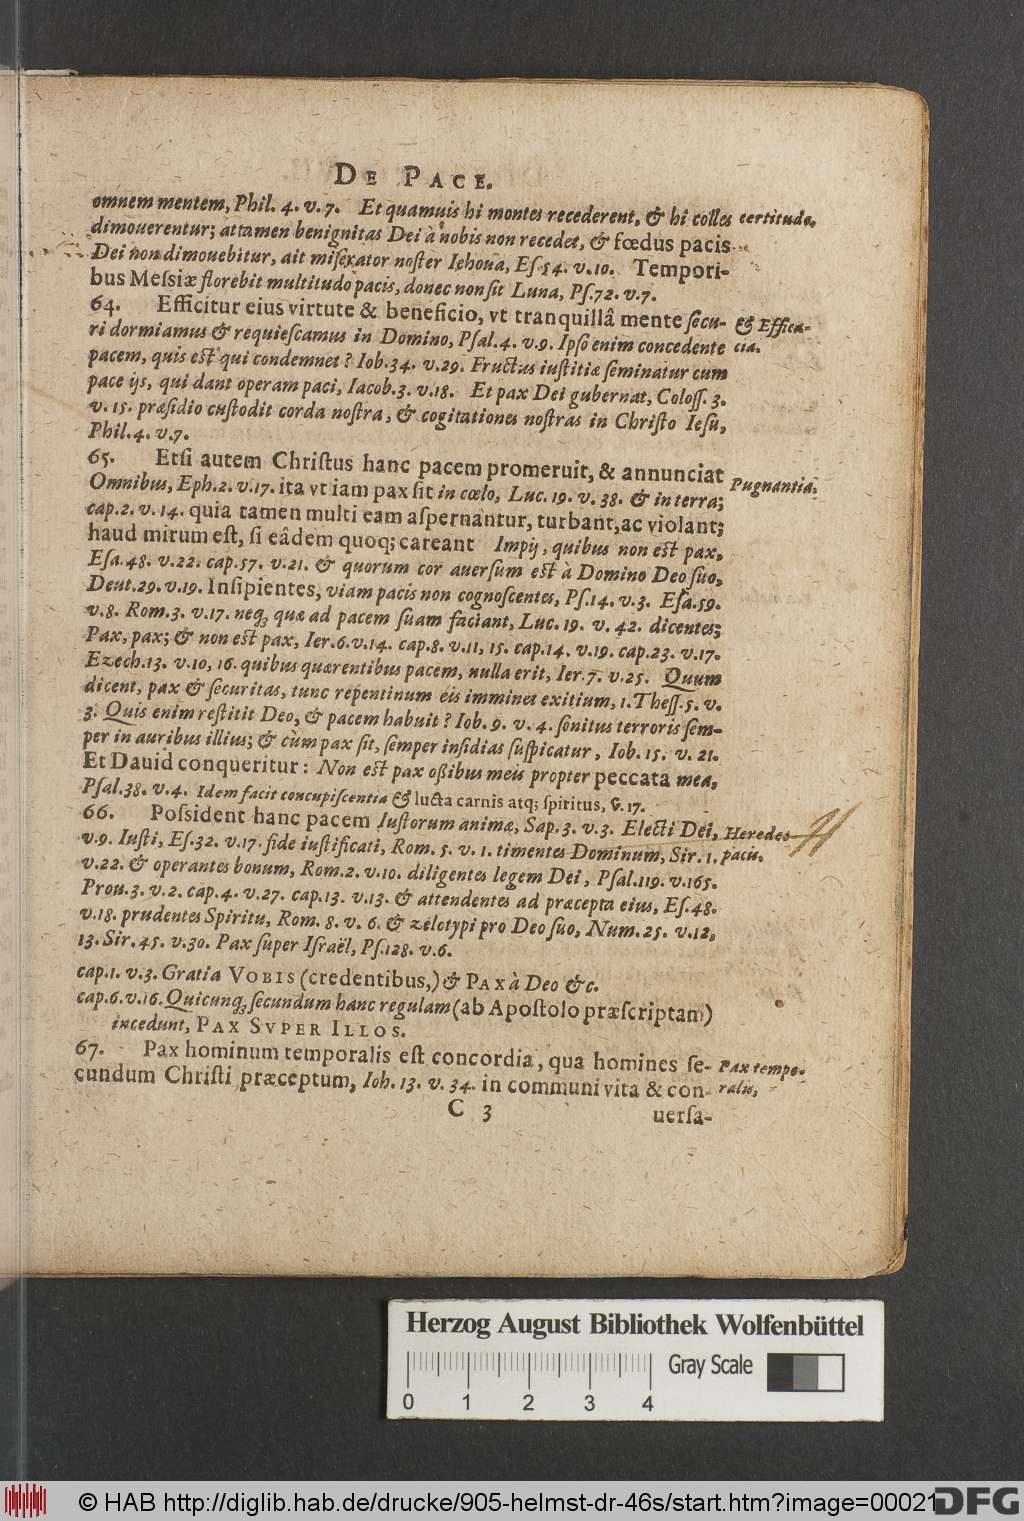 DE PACE.
omnem mentem, Phil. 4. v. 7. Et quamuis hi montes recederent, & hi colles certitudo,
dimouerentur; attamen benignitas Dei à nobis non recedet, & fœdus pacis
Dei non dimouebitur, ait miſerator noſter Iehoua, Eſ. 54. v. 10. Tempori-
bus Meſsiæ florebit multitudo pacis, donec non ſit Luna, Pſ. 72. v. 7.
64. Efficitur eius virtute & beneficio, vt tranquillâ mente ſecu- & Effica-
ri dormiamus & requieſcamus in Domino, Pſal. 4. v. 9. Ipſo enim concedente cia.
pacem, quis eſt qui condemnet? Iob. 34. v. 29. Fructus iuſtitiæ ſeminatur cum
pace ijs, qui dant operam paci, Iacob. 3. v. 18. Et pax Dei gubernat, Coloſſ. 3.
v. 15. præſidio cuſtodit corda noſtra, & cogitationes noſtras in Chriſto Ieſu,
Phil. 4. v. 7.
65. Etſi autem Chriſtus hanc pacem promeruit, & annunciat Pugnantia:
Omnibus, Eph. 2. v. 17. ita vt iam pax ſit in cœlo, Luc. 19. v. 38. & in terra;
cap. 2. v. 14. quia tamen multi eam aſpernantur, turbant, ac violant;
haud mirum eſt, ſi eâdem quoq; careant Impij, quibus non eſt pax,
Eſa. 48. v. 22. cap. 57. v. 21. & quorum cor auerſum eſt à Domino Deo ſuo,
Deut. 29. v. 19. Inſipientes, viam pacis non cognoſcentes, Pſ. 14. v. 3. Eſa. 59.
v. 8. Rom. 3. v. 17. neq; quæ ad pacem ſuam faciant, Luc. 19. v. 42. dicentes;
Pax, pax; & non eſt pax, Ier. 6. v. 14. cap. 8. v. 11, 15. cap. 14. v. 19. cap. 23. v. 17.
Ezech. 13. v. 10, 16. quibus quærentibus pacem, nulla erit, Ier. 7. v. 25. Quum
dicent, pax & ſecuritas, tunc repentinum eis imminet exitium, 1. Theſſ. 5. v.
3. Quis enim reſtitit Deo, & pacem habuit? Iob. 9. v. 4. ſonitus terroris ſem-
per in auribus illius; & cùm pax ſit, ſemper inſidias ſuſpicatur, Iob. 15. v. 21.
Et Dauid conqueritur: Non eſt pax oßibus meis propter peccata mea,
Pſal. 38. v. 4. Idem facit concupiſcentia & lucta carnis atq; ſpiritus, G. 17.
66. Poſsident hanc pacem Iuſtorum animæ, Sap. 3. v. 3. Electi Dei, Heredes
v. 9. Iuſti, Eſ. 32. v. 17. fide iuſtificati, Rom. 5. v. 1. timentes Dominum, Sir. 1. pacis.
v. 22. & operantes bonum, Rom. 2. v. 10. diligentes legem Dei, Pſal. 119. v. 165.
Prou. 3. v. 2. cap. 4. v. 27. cap. 13. v. 13. & attendentes ad præcepta eius, Eſ. 48.
v. 18. prudentes Spiritu, Rom. 8. v. 6. & zelotypi pro Deo ſuo, Num. 25. v. 12,
13. Sir. 45. v. 30. Pax ſuper Iſraël, Pſ. 128. v. 6.
cap. 1. v. 3. Gratia VOBIS (credentibus,) & PAX à Deo &c.
cap. 6. v. 16. Quicunq; ſecundum hanc regulam (ab Apoſtolo præſcriptam)
incedunt, PAX SVPER ILLOS.
67. Pax hominum temporalis eſt concordia, qua homines ſe- Pax tempo-
cundum Chriſti præceptum, Ioh. 13. v. 34. in communi vita & con- ralis,
C 3 uerſa-
Herzog August Bibliothek Wolfenbüttel
Gray Scale
0 1 2 3 4
© HAB http://diglib.hab.de/drucke/905-helmst-dr-46s/start.htm?image=00021
DFG